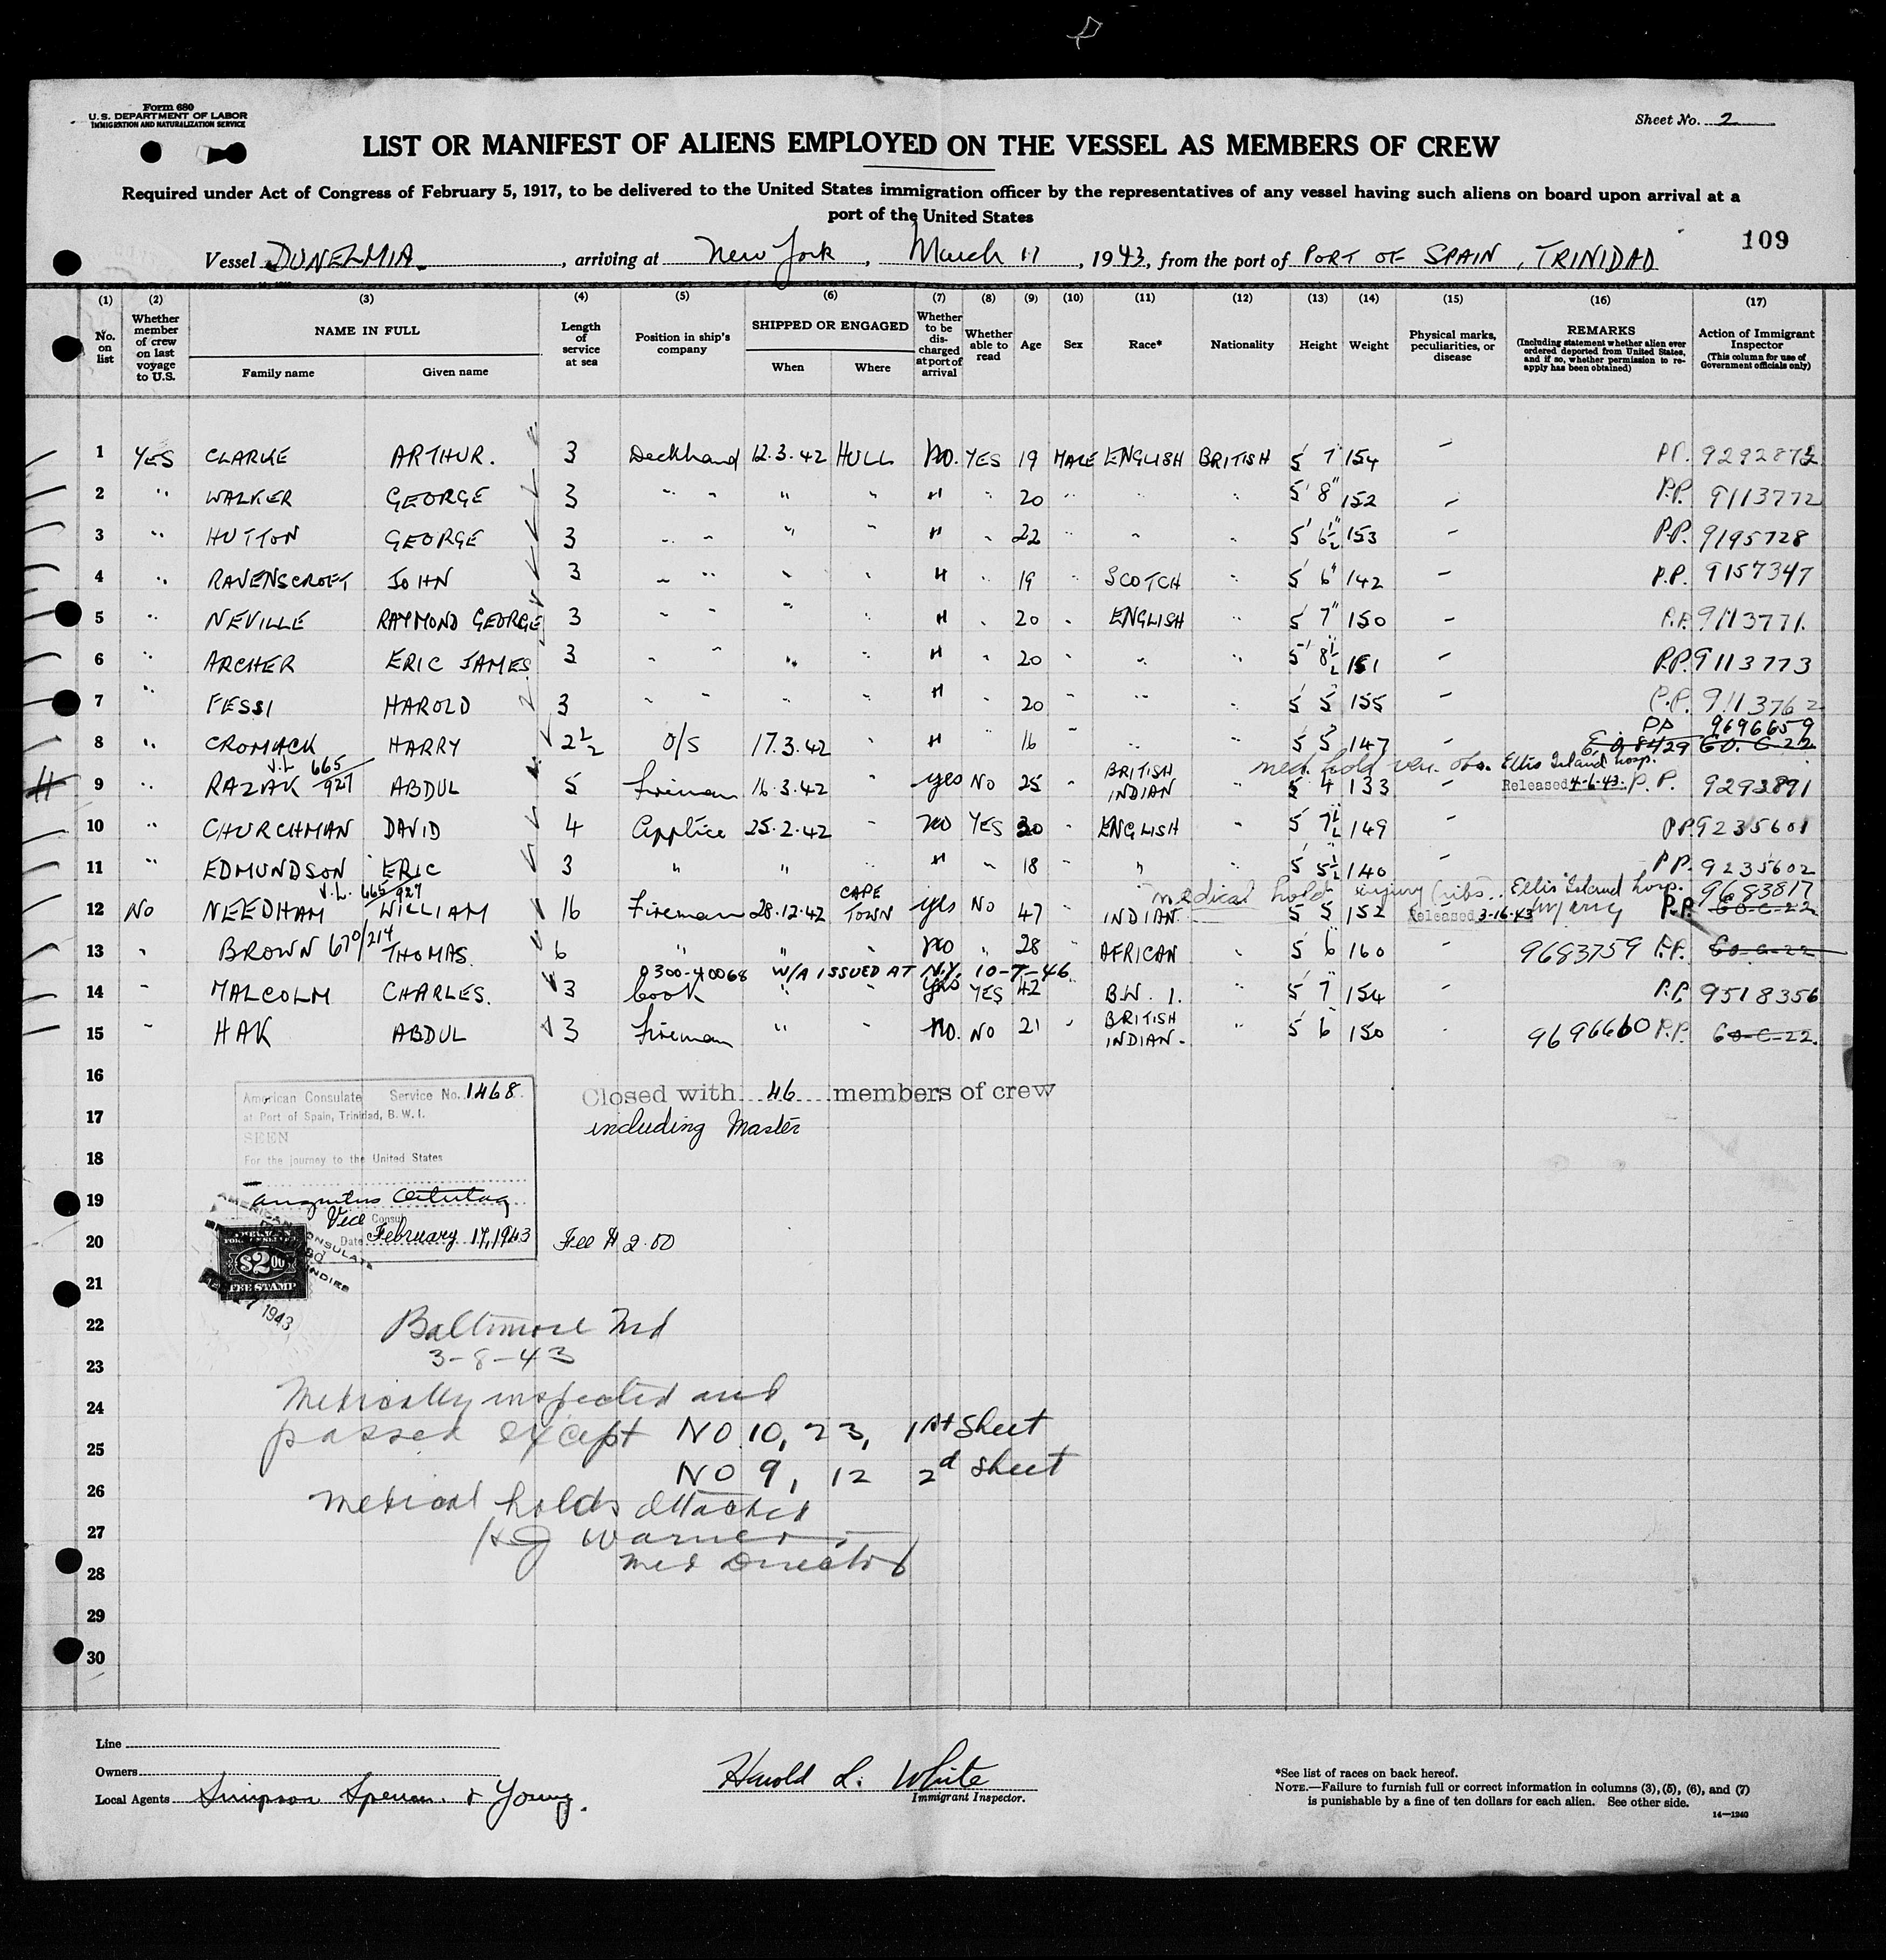 Form 680
U.S. DEPARTMENT OF LABOR
IMMIGRATION AND NATURALIZATION SERVICE
Sheet No. 2
LIST OR MANIFEST OF ALIENS EMPLOYED ON THE VESSEL AS MEMBERS OF CREW
Required under Act of Congress of February 5, 1917, to be delivered to the United States immigration officer by the representatives of any vessel having such aliens on board upon arrival at a
port of the United States
109
Vessel DUNELMIA, arriving at New York, March 11, 1943, from the port of PORT OF SPAIN, TRINIDAD
(1) (2) (3) (4) (5) (6) (7) (8) (9) (10) (11) (12) (13) (14) (15) (16) (17)
No. on list
Whether member of crew on last voyage to U.S.
NAME IN FULL
Family name
Given name
Length of service at sea
Position in ship's company
SHIPPED OR ENGAGED
When
Where
Whether to be discharged at port of arrival
Whether able to read
Age
Sex
Race*
Nationality
Height
Weight
Physical marks, peculiarities, or disease
REMARKS
(Including statement whether alien ever ordered deported from United States, and if so, whether permission to re-apply has been obtained)
Action of Immigrant Inspector
(This column for use of Government officials only)
1 YES CLARKE ARTHUR. 3 Deckhand 12.3.42 HULL No. YES 19 MALE ENGLISH BRITISH 5' 7" 154 - P.P. 9292872
2 " WALKER GEORGE 3 " " " " " " 20 " " " 5' 8" 152 - P.P. 9113772
3 " HUTTON GEORGE 3 " " " " " " 22 " " " 5' 6½" 153 - P.P. 9195728
4 " RAVENSCROFT JOHN 3 " " " " " " 19 " SCOTCH " 5' 6" 142 - P.P. 9157347
5 " NEVILLE RAYMOND GEORGE 3 " " " " " " 20 " ENGLISH " 5' 7" 150 - P.P. 9113771
6 " ARCHER ERIC JAMES 3 " " " " " " 20 " " " 5' 8½" 151 - P.P. 9113773
7 " FESSI HAROLD 3 " " " " " 20 " " " 5 5 155 - P.P. 9113762
PP 9696659
8 " CROMACK HARRY 2½ O/S 17.3.42 " " " 16 " " " 5 5 147 - E.O 8429 EO. C-22
V.L 665/927
med. hold ven. obs. Ellis Island hosp.
9 " RAZAK ABDUL 5 Fireman 16.3.42 " yes No 25 " BRITISH INDIAN " 5 4 133 - Released 4-6-43. P.P. 9292891
10 " CHURCHMAN DAVID 4 Apptice 25.2.42 " no YES 20 " ENGLISH " 5 7½ 149 P.P. 9235601
11 " EDMUNDSON ERIC 3 " " " " " 18 " " " 5 5½ 140 - P.P. 9235602
V.L. 665/927
medical hold injury (ribs). Ellis Island hosp. 9683817
12 No NEEDHAM WILLIAM 16 Fireman 28.12.42 CAPE TOWN yes No 47 " INDIAN. " 5 5 152 Released 3-16-43 injury P.P. EO-C-22
13 " BROWN 670/214 THOMAS. 6 " " " no " 28 " AFRICAN " 5 6 160 - 9683759 P.P. EO-C-22
0300-40068 W/A ISSUED AT N.Y. 10-7-46
14 " MALCOLM CHARLES. 3 Cook " " yes YES 42 " B.W.I. " 5 7 154 - P.P. 9518356
15 " HAK ABDUL 3 Fireman " " No. No 21 " BRITISH INDIAN. " 5 6 150 - 9696660 P.P. EO-C-22.
16
17
18
19
20
21
22
23
24
25
26
27
28
29
30
American Consulate Service No. 1468
at Port of Spain, Trinidad, B.W.I.
SEEN
For the journey to the United States
Vice Consul
Date February 17, 1943
Closed with 46 members of crew
including Master
Fee $2.00
$2.00
FEE STAMP
1943
Baltimore Md
3-8-43
Medically inspected and
passed except NO 10, 23, 1st Sheet
NO 9, 12 2d sheet
Medical holds attached
Warner
Med Director
Line
Owners
Local Agents Simpson Spence & Young.
Harold L. White
Immigrant Inspector.
*See list of races on back hereof.
NOTE.—Failure to furnish full or correct information in columns (3), (5), (6), and (7)
is punishable by a fine of ten dollars for each alien. See other side.
14—1240